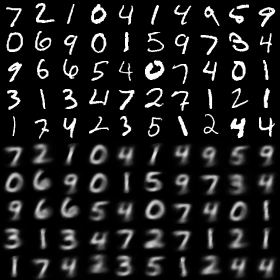 7 2 1 0 4 1 4 9 5 9
0 6 9 0 1 5 9 7 3 4
9 6 6 5 4 0 7 4 0 1
3 1 3 4 7 2 7 1 2 1
1 7 4 2 3 5 1 2 4 4
7 2 1 0 4 1 4 9 5 9
0 6 9 0 1 5 9 7 3 4
9 6 6 5 4 0 7 4 0 1
3 1 3 4 7 2 7 1 2 1
1 7 4 2 3 5 1 2 4 4